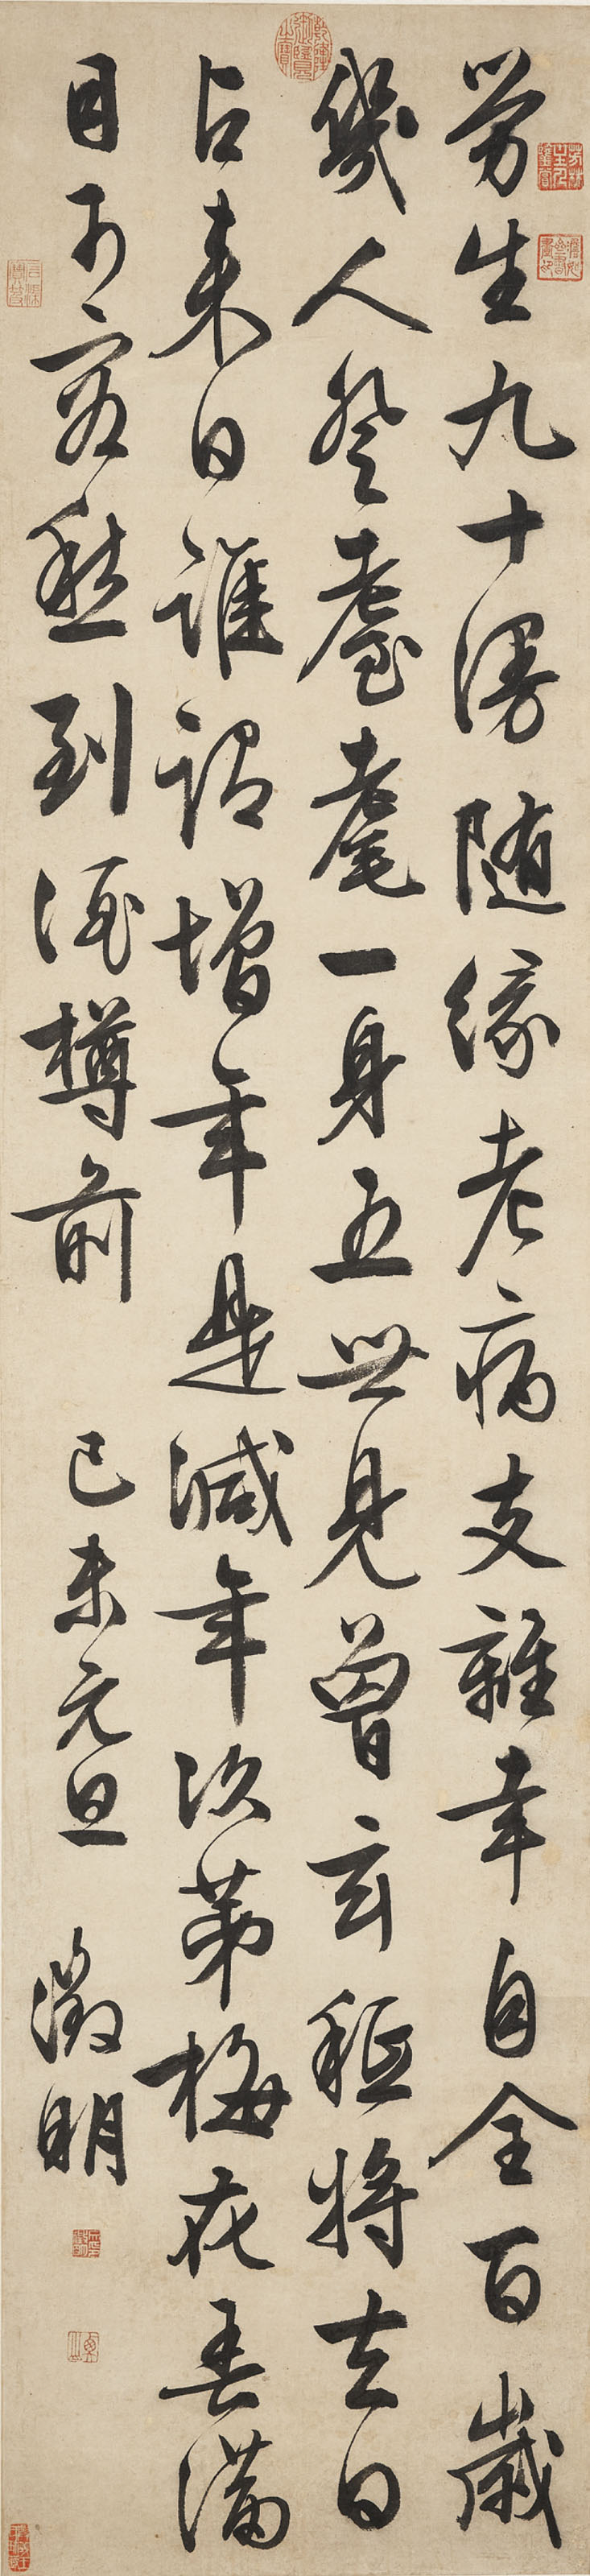 劳生九十漫随缘老病支離幸自全百歳
幾人登耄耋一身五世見曾玄秪将去日
占来日谁謂增年是減年次苐梅花春满
目可容愁到酒樽前 己未元旦 徵明